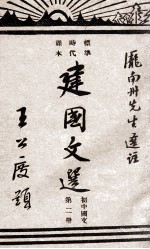 龎南州先生選註
標準
時代
建國文選
初中國文
第二冊
王公度題